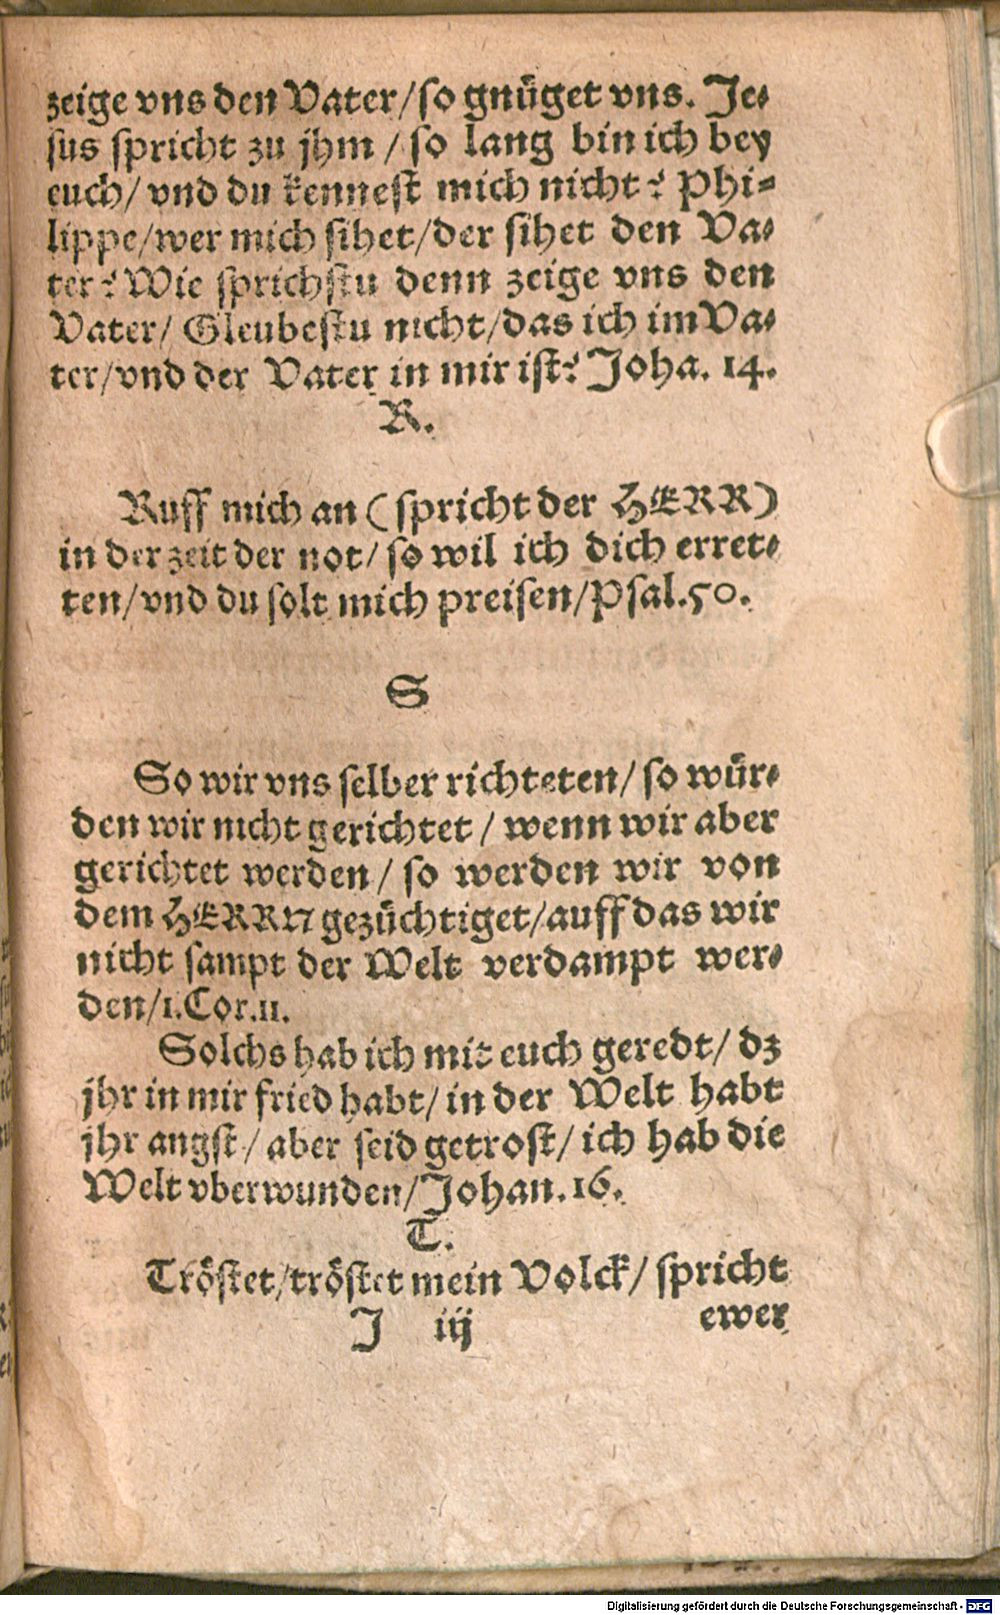 zeige vns den Vater/so gnüget vns. Je-
sus spricht zu jhm / so lang bin ich bey
euch/ vnd du kennest mich nicht? Phi-
lippe/wer mich sihet/der sihet den Va-
ter? Wie sprichstu denn zeige vns den
Vater/ Gleubestu nicht/das ich im Va-
ter/vnd der Vater in mir ist? Joha. 14.
R.
Ruff mich an (spricht der HERR)
in der zeit der not/ so wil ich dich erret-
ten/vnd du solt mich preisen/Psal.50.
S
So wir vns selber richteten/ so wür-
den wir nicht gerichtet / wenn wir aber
gerichtet werden/ so werden wir von
dem HERRN gezüchtiget/auff das wir
nicht sampt der Welt verdampt wer-
den/1.Cor.11.
Solchs hab ich mit euch geredt/ dz
jhr in mir fried habt/ in der Welt habt
jhr angst/ aber seid getrost/ ich hab die
Welt vberwunden/Johan.16.
T.
Tröstet/tröstet mein Volck/ spricht
J iij ewer
Digitalisierung gefördert durch die Deutsche Forschungsgemeinschaft - DFG